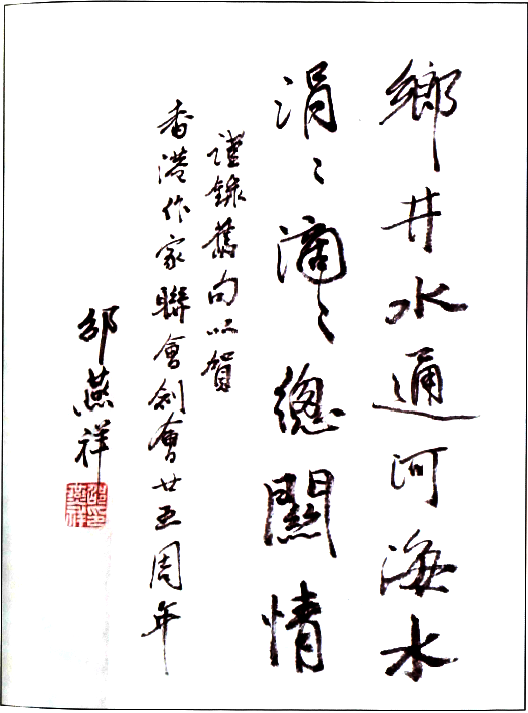 鄉井水通河海水
涓々滴々總關情
謹錄舊句以賀
香港作家聯會創會廿五周年
邵燕祥
邵燕祥印